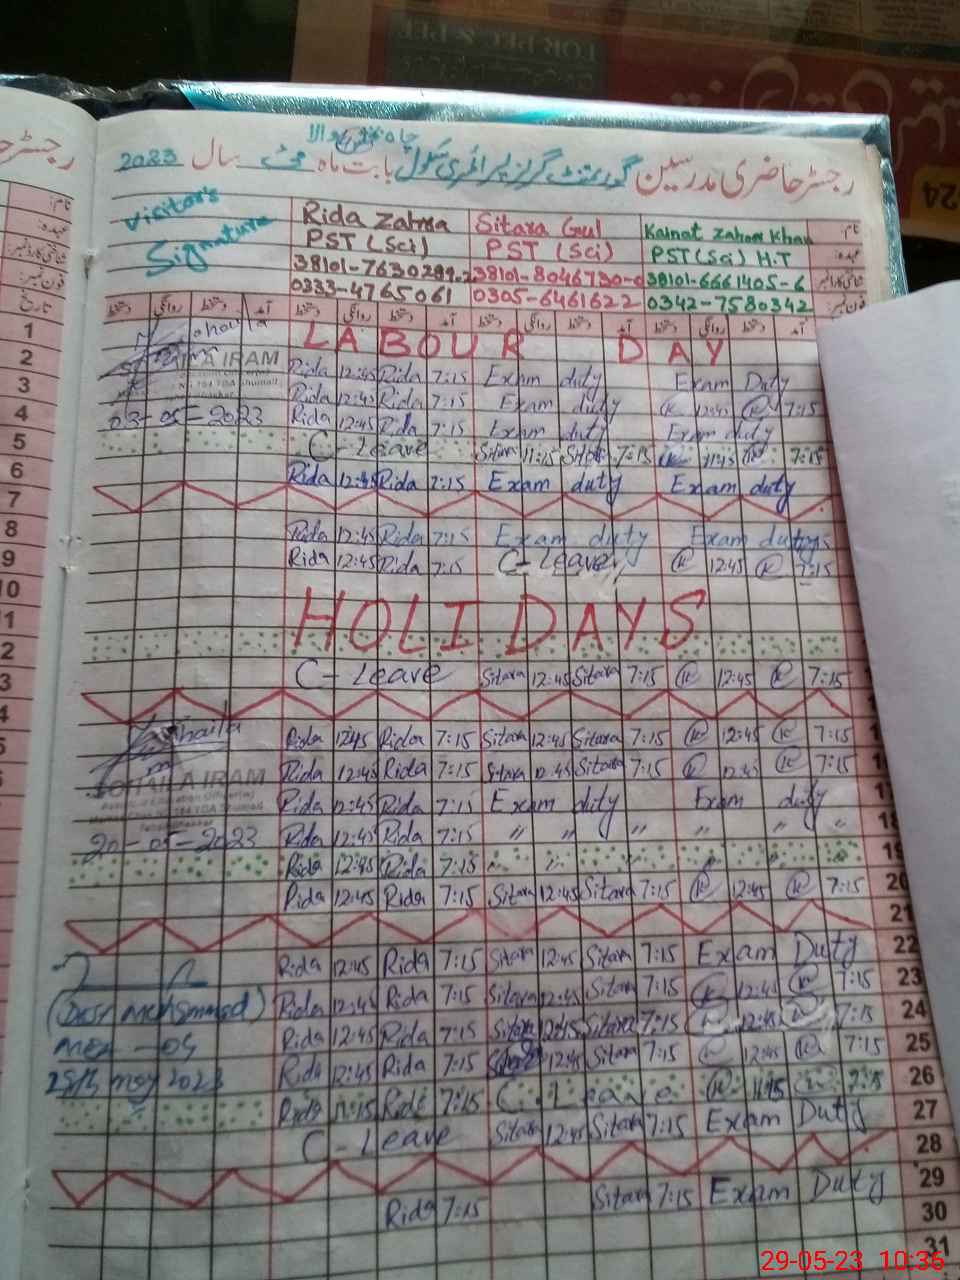 FOR PEC & PEE
24
چاہ والا
رجسٹر حاضری مدرسین گورنمنٹ گرلز پرائمری سکول بابت ماہ مئی سال 2023
Visitor's Signature
Rida Zahra Sitara Gul Kainat Zahoor Khan نام:
PST (Sci) PST (Sci) PST (Sci) H.T عہدہ:
38101-7630289-2 38101-8046730-0 38101-6661405-6 شناختی کارڈ نمبر:
0333-4765061 0305-6461622 0342-7580342 فون نمبر:
تاریخ دستخط روانگی دستخط آمد دستخط روانگی دستخط آمد دستخط روانگی دستخط آمد
1 LABOUR DAY
2 Rida 12:45 Rida 7:15 Exam duty Exam Duty
3 Rida 12:45 Rida 7:15 Exam duty K 12:45 K 7:15
4 03-05-2023 Rida 12:45 Rida 7:15 Exam duty Exam duty
5 C-Leave Sitara 11:15 Sitara 7:15 K 11:15 K 7:15
6 Rida 12:45 Rida 7:15 Exam duty Exam duty
7
8 Rida 12:45 Rida 7:15 Exam duty Exam duty
9 Rida 12:45 Rida 7:15 C-Leave K 12:45 K 7:15
10
11 HOLIDAYS
12
13 C-Leave Sitara 12:45 Sitara 7:15 K 12:45 K 7:15
14
15 Sohaila Rida 12:45 Rida 7:15 Sitara 12:45 Sitara 7:15 K 12:45 K 7:15
Rida 12:45 Rida 7:15 Sitara 12:45 Sitara 7:15 K 12:45 K 7:15
SOHAILA IRAM Rida 12:45 Rida 7:15 Exam duty Exam duty 17
20-05-2023 Rida 12:45 Rida 7:15 " " " " " " 18
Rida 12:45 Rida 7:15 " " " " " " 19
Rida 12:45 Rida 7:15 Sitara 12:45 Sitara 7:15 K 12:45 K 7:15 20
21
Rida 12:45 Rida 7:15 Sitara 12:45 Sitara 7:15 Exam Duty 22
Rida 12:45 Rida 7:15 Sitara 12:45 Sitara 7:15 K 12:45 K 7:15 23
Rida 12:45 Rida 7:15 Sitara 12:45 Sitara 7:15 K 12:45 K 7:15 24
25th may 2023 Rida 12:45 Rida 7:15 12:45 Sitara 7:15 K 12:45 K 7:15 25
Rida 11:15 Rida 7:15 C-Leave K 11:15 K 7:15 26
C-Leave Sitara 12:45 Sitara 7:15 Exam Duty 27
28
Rida 7:15 Sitara 7:15 Exam Duty 29
30
31
29-05-23 10:36